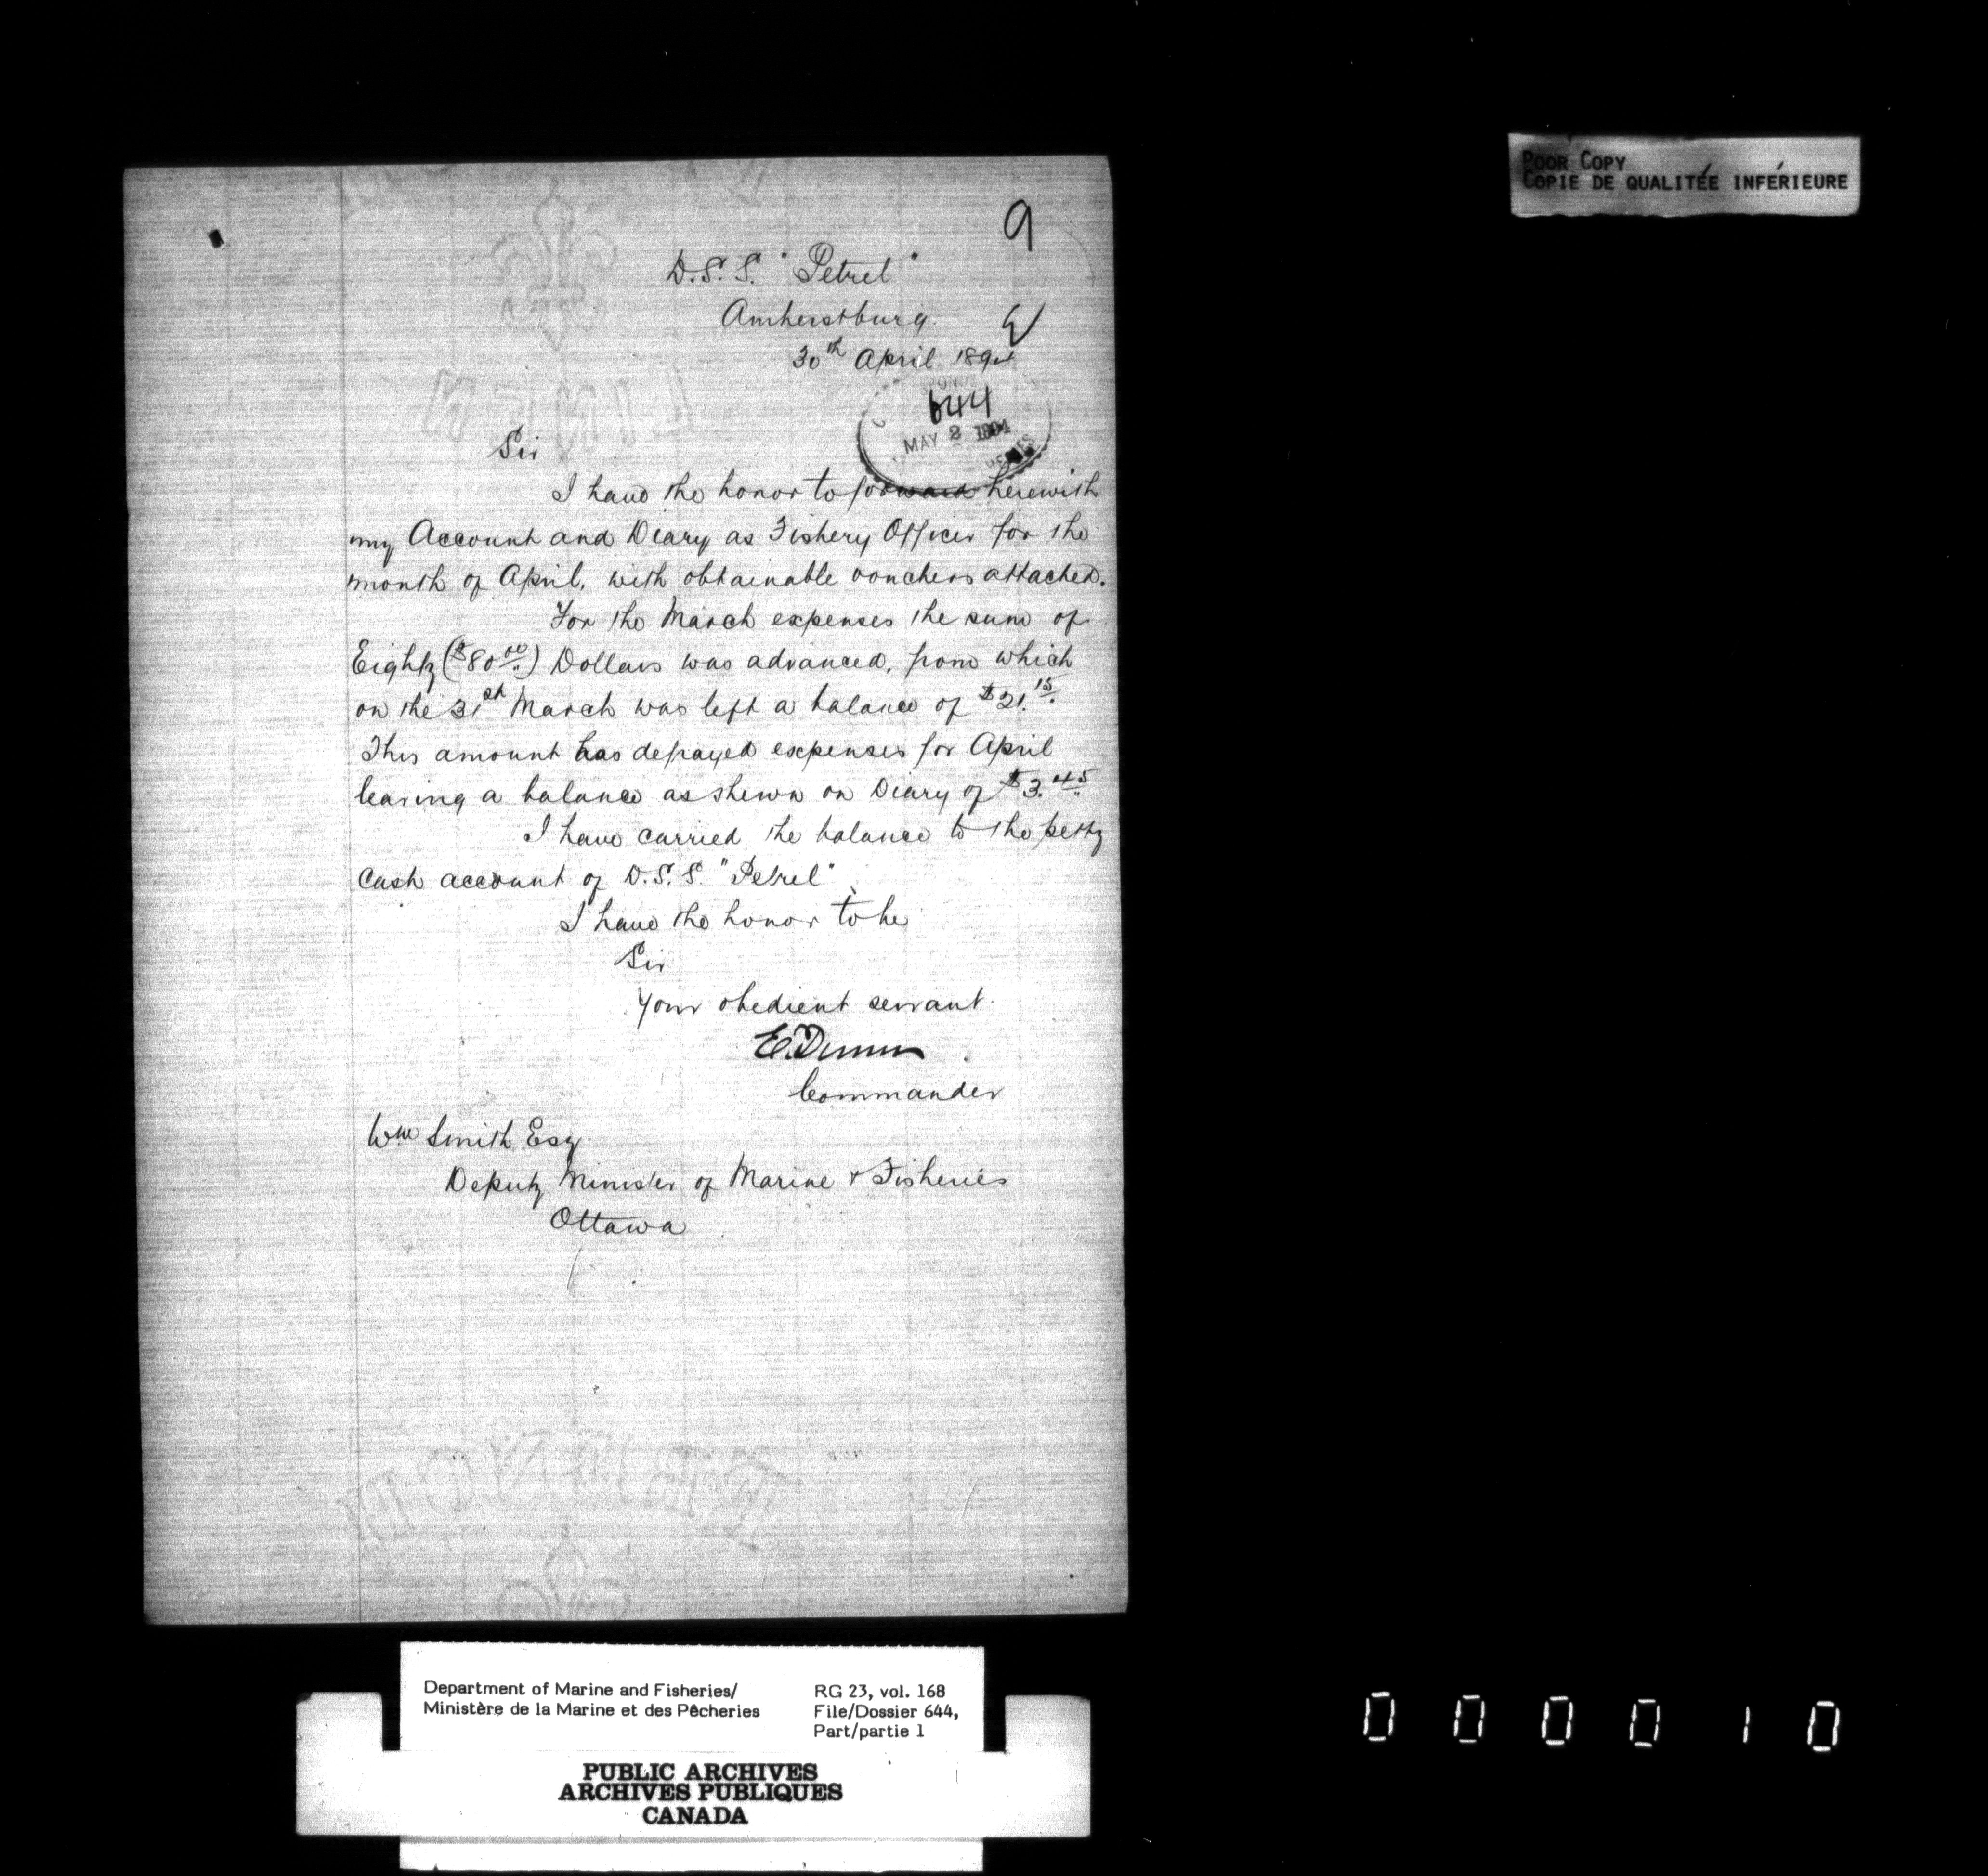 POOR COPY
COPIE DE QUALITÉE INFÉRIEURE
9
D.S.S. "Petrel"
Amherstburg.
30th April 1894
644
MAY 2 1894
Sir
I have the honor to forward herewith
my Account and Diary as Fishery Officer for the
month of April, with obtainable vouchers attached.
For the March expenses the sum of
Eighty ($80.00) Dollars was advanced, from which
on the 31st March was left a balance of $21.15.
This amount has defrayed expenses for April
leaving a balance as shewn on Diary of $3.45
I have carried the balance to the petty
Cash account of D.S.S. "Petrel".
I have the honor to be
Sir
Your obedient servant.
E. Dunn
Commander
Wm Smith Esq
Deputy Minister of Marine & Fisheries
Ottawa
LINEN
FRENCH
Department of Marine and Fisheries/
Ministère de la Marine et des Pêcheries
RG 23, vol. 168
File/Dossier 644,
Part/partie 1
PUBLIC ARCHIVES
ARCHIVES PUBLIQUES
CANADA
000010